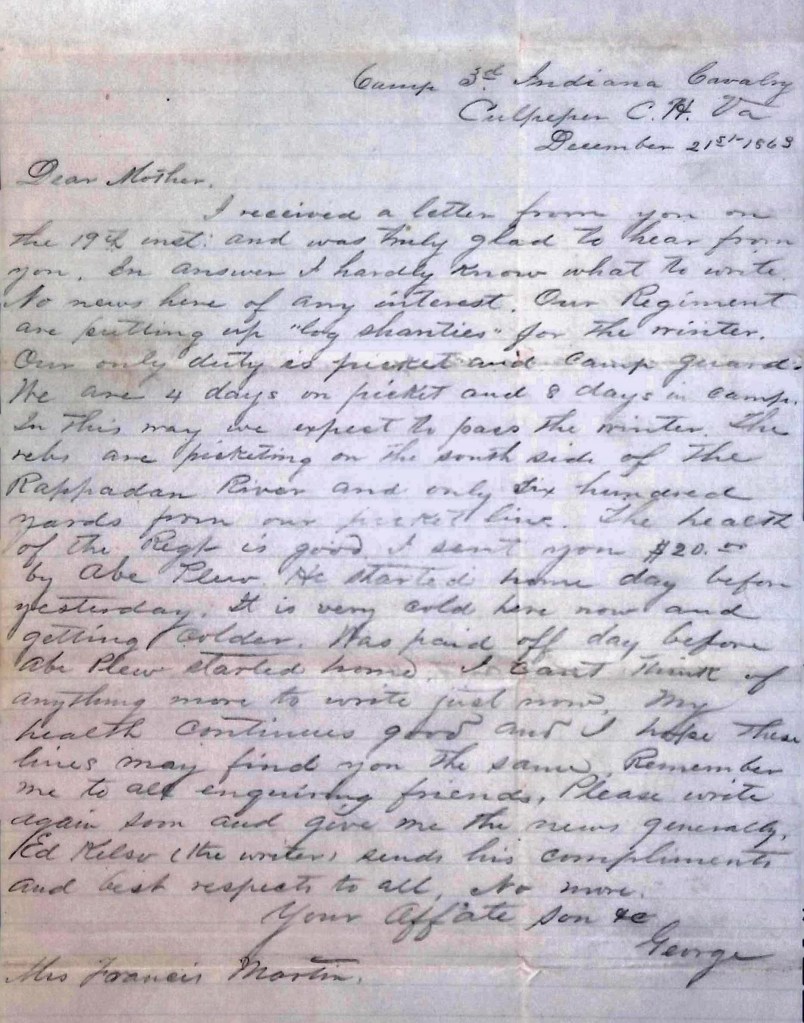 Camp 3rd Indiana Cavalry
Culpeper C. H. Va
December 21st 1863
Dear Mother.
I received a letter from you on
the 19th inst: and was truly glad to hear from
you. In answer I hardly know what to write.
No news here of any interest. Our Regiment
are putting up "log shanties" for the winter.
Our only duty is picket and camp guard.
We are 4 days on picket and 8 days in camp.
In this way we expect to pass the winter. The
rebs are picketing on the south side of the
Rappadan River and only six hundred
yards from our picket line. The health
of the Regt is good. I sent you $20.00
by Abe Plew. He started home day before
yesterday. It is very cold here now and
getting colder. Was paid off day before
Abe Plew started home. I can't think of
anything more to write just now. My
health continues good and I hope these
lines may find you the same. Remember
me to all enquiring friends. Please write
again soon and give me the news generally.
Ed Kelso (the writer) sends his compliments
and best respects to all. No more.
Your Aff'ate son &c
George
Mrs Francis Martin.